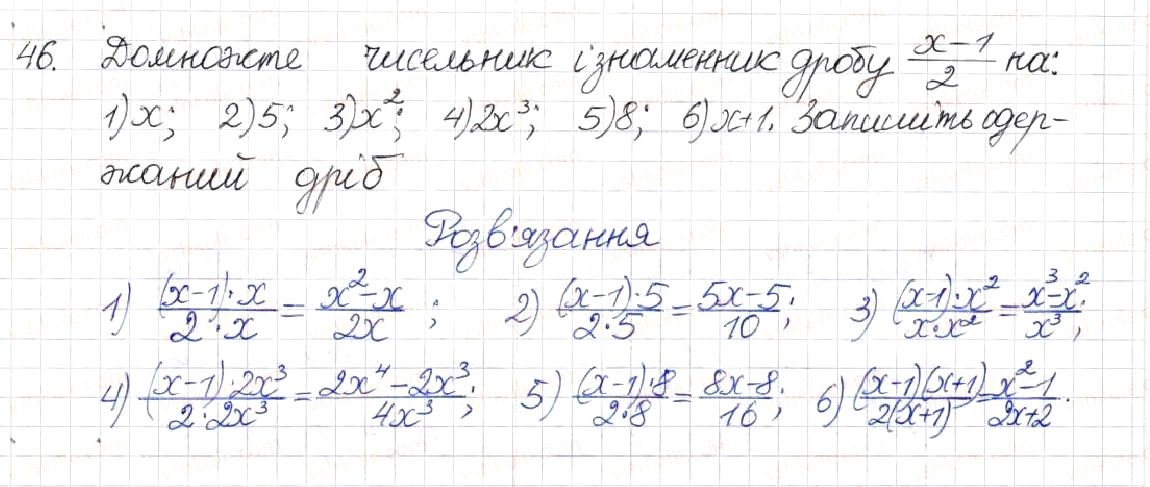 46. Домножте чисельник і знаменник дробу (x-1)/2 на:
1) x; 2) 5; 3) x²; 4) 2x³; 5) 8; 6) x+1. Запишіть одер-
жаний дріб
Розв'язання
1) ((x-1)·x)/(2·x) = (x²-x)/(2x); 2) ((x-1)·5)/(2·5) = (5x-5)/10; 3) ((x-1)·x²)/(x·x²) = (x³-x²)/x³;
4) ((x-1)·2x³)/(2·2x³) = (2x⁴-2x³)/(4x³); 5) ((x-1)·8)/(2·8) = (8x-8)/16; 6) ((x-1)(x+1))/(2(x+1)) = (x²-1)/(2x+2).